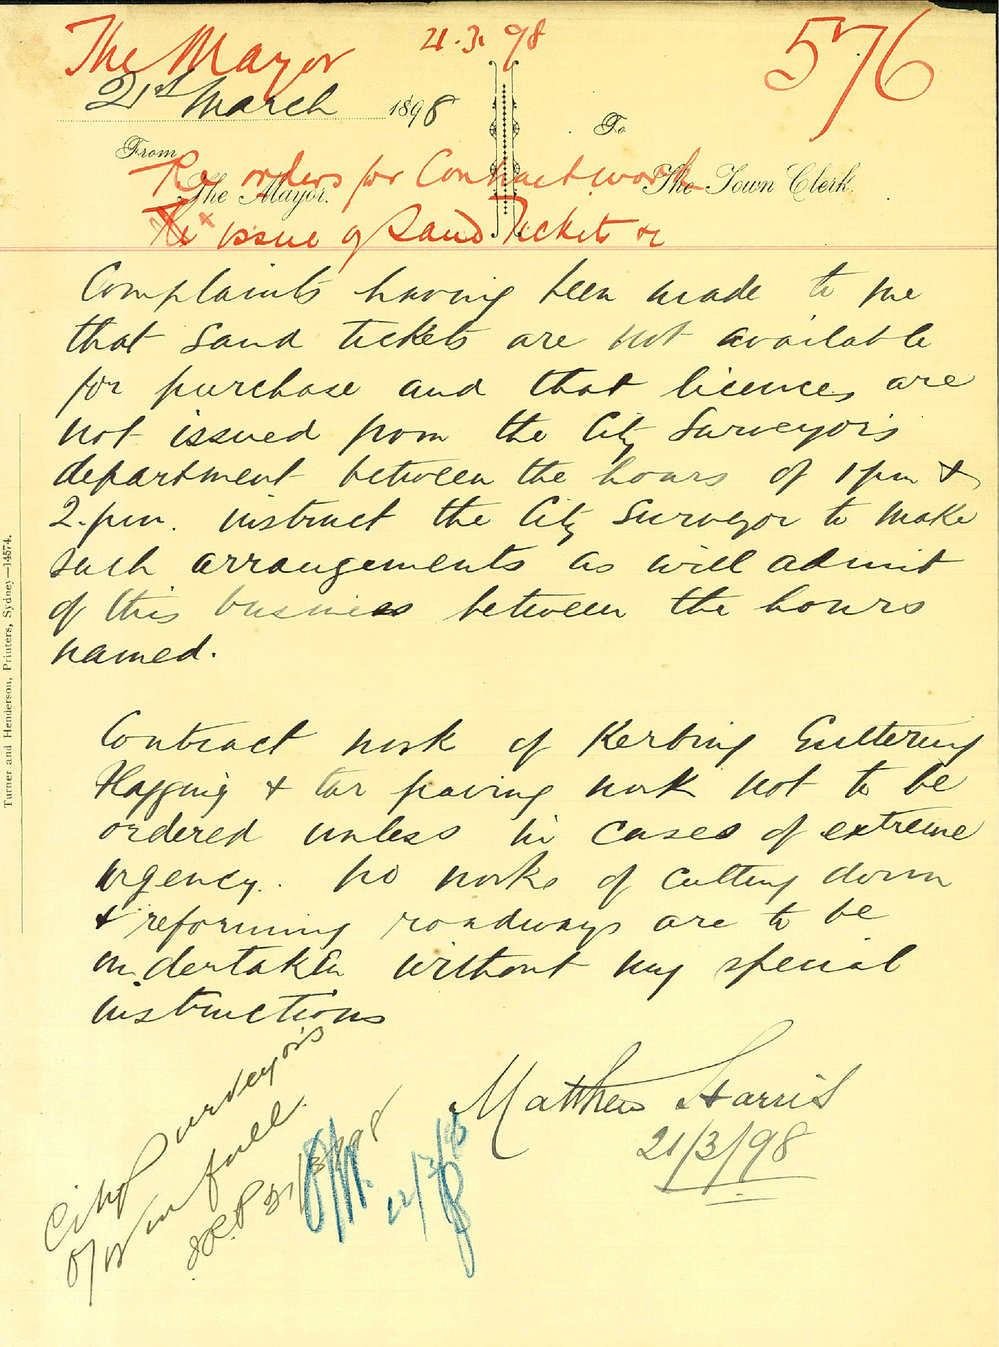 The Mayor
21.3.98
576
21st March 1898
From
The Mayor.
To
The Town Clerk.
Re orders for Contract work
& issue of Sand Tickets &c
Complaints having been made to me
that sand tickets are not available
for purchase and that licences are
not issued from the City Surveyor's
department between the hours of 1pm &
2.pm. instruct the City Surveyor to make
such arrangements as will admit
of this business between the hours
named.
Contract work of Kerbing Guttering
Flagging & tar paving work not to be
ordered unless in cases of extreme
urgency. No works of cutting down
& reforming roadways are to be
undertaken without my special
instructions
Matthew Harris
21/3/98
City Surveyor's
in full.
21/3/98
22/3/98
Turner and Henderson, Printers, Sydney—14574.